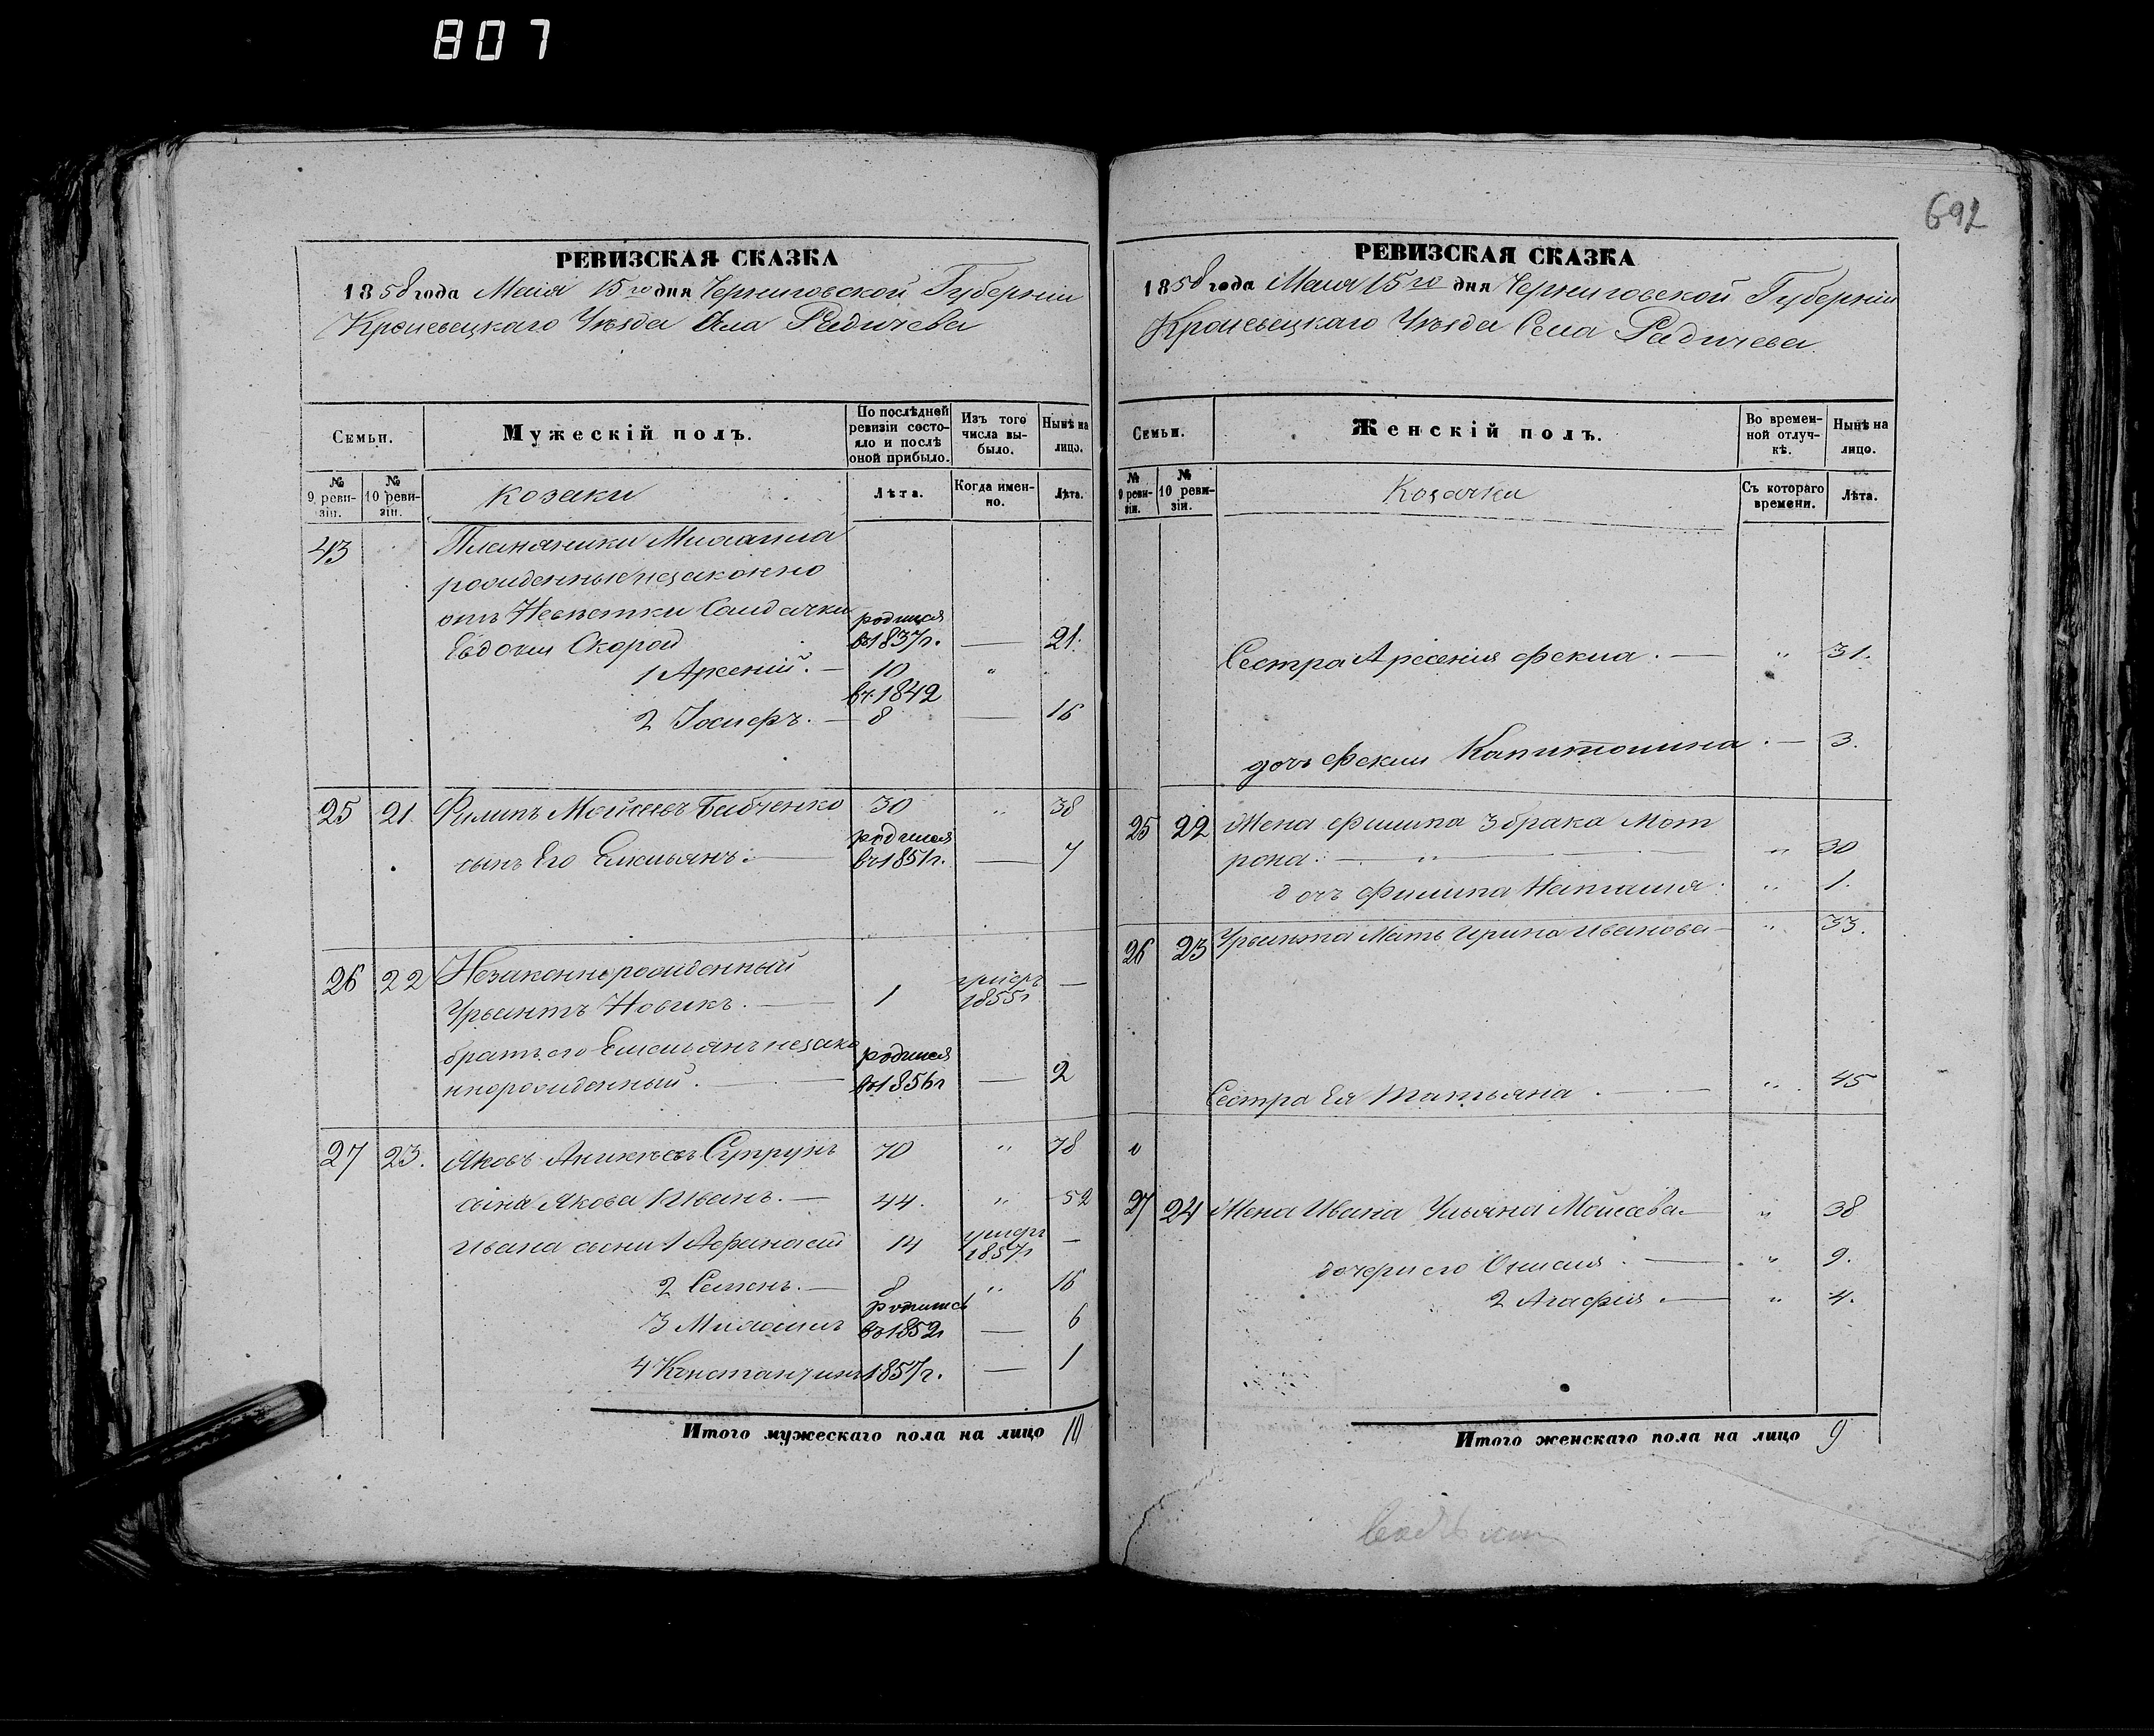 807
692
РЕВИЗСКАЯ СКАЗКА
1858 года Маія 15го дня Черниговской Губерніи
Кролевецкаго Уѣзда Села Радичева
Семьи.
Мужескій полъ.
По послѣдней ревизіи состояло и послѣ оной прибыло.
Изъ того числа выбыло.
Нынѣ на лицо.
№ 9 ревизіи.
№ 10 ревизіи.
Козаки
Лѣта.
Когда именно.
Лѣта.
43 Племяники Михаила
рожденные незаконно
отъ Невѣстки Солдачки
Евдокіи Скорой
1 Арсеній. — родился въ 1837г. 10 — " 21.
2 Іосифъ. — въ 1842 8 — 16
25 21. Филипъ Мойсеевъ Бабченко 30 " 38
сынъ Его Емельянъ. — родился въ 1851г. — 7
26 22 Незаконнорожденный
Урвантъ Новикъ. — 1 умеръ 1855г —
братъ его Емельянъ незако
ннорожденный. — родился въ 1856г — 2
27 23. Яковъ Аникѣевъ Супрунъ 70 " 78
сынъ Якова Иванъ. — 44. " 52
Ивана сыны 1 Афанасій 14 умеръ 1857г —
2 Семенъ. — 8 " 16
3 Михаилъ родился въ 1852г — 6
4 Константинъ 1857г. — 1
Итого мужескаго пола на лицо 10
РЕВИЗСКАЯ СКАЗКА
1858 года Маія 15го дня Черниговской Губерніи
Кролевецкаго Уѣзда Села Радичева
Семьи.
Женскій полъ.
Во временной отлучкѣ.
Нынѣ на лицо.
№ 9 ревизіи.
№ 10 ревизіи.
Козачки
Съ котораго времени.
Лѣта.
Сестра Арсенія Фекла. — " 31.
дочь Феклы Капитолина. — 3.
25 22 Жена Филипа 3 брака Мот
рона. — " — " 30
дочь Филипа Наталія. " 1.
26 23 Урванта Мать Ирина Иванова — " 33.
Сестра Ея Татьяна. — " 45
27 24 Жена Ивана Ульяна Мойсеева. — " 38
дочери его — " 9.
2 Агафія. — " 4.
Итого женскаго пола на лицо 9